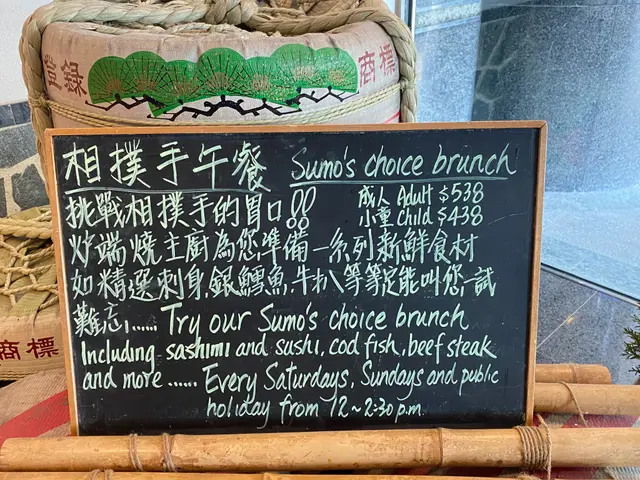 登録
商標
相撲手午餐 Sumo's choice brunch
挑戰相撲手的胃口!!
成人 Adult $538
小童 Child $438
炉端燒主廚為您準備一系列新鮮食材
如精選刺身,銀鱈魚,牛扒等等定能叫您一試
難忘...... Try our Sumo's choice brunch
Including sashimi and sushi, cod fish, beef steak
and more ...... Every Saturdays, Sundays and public
holiday from 12~2:30 p.m.
商標